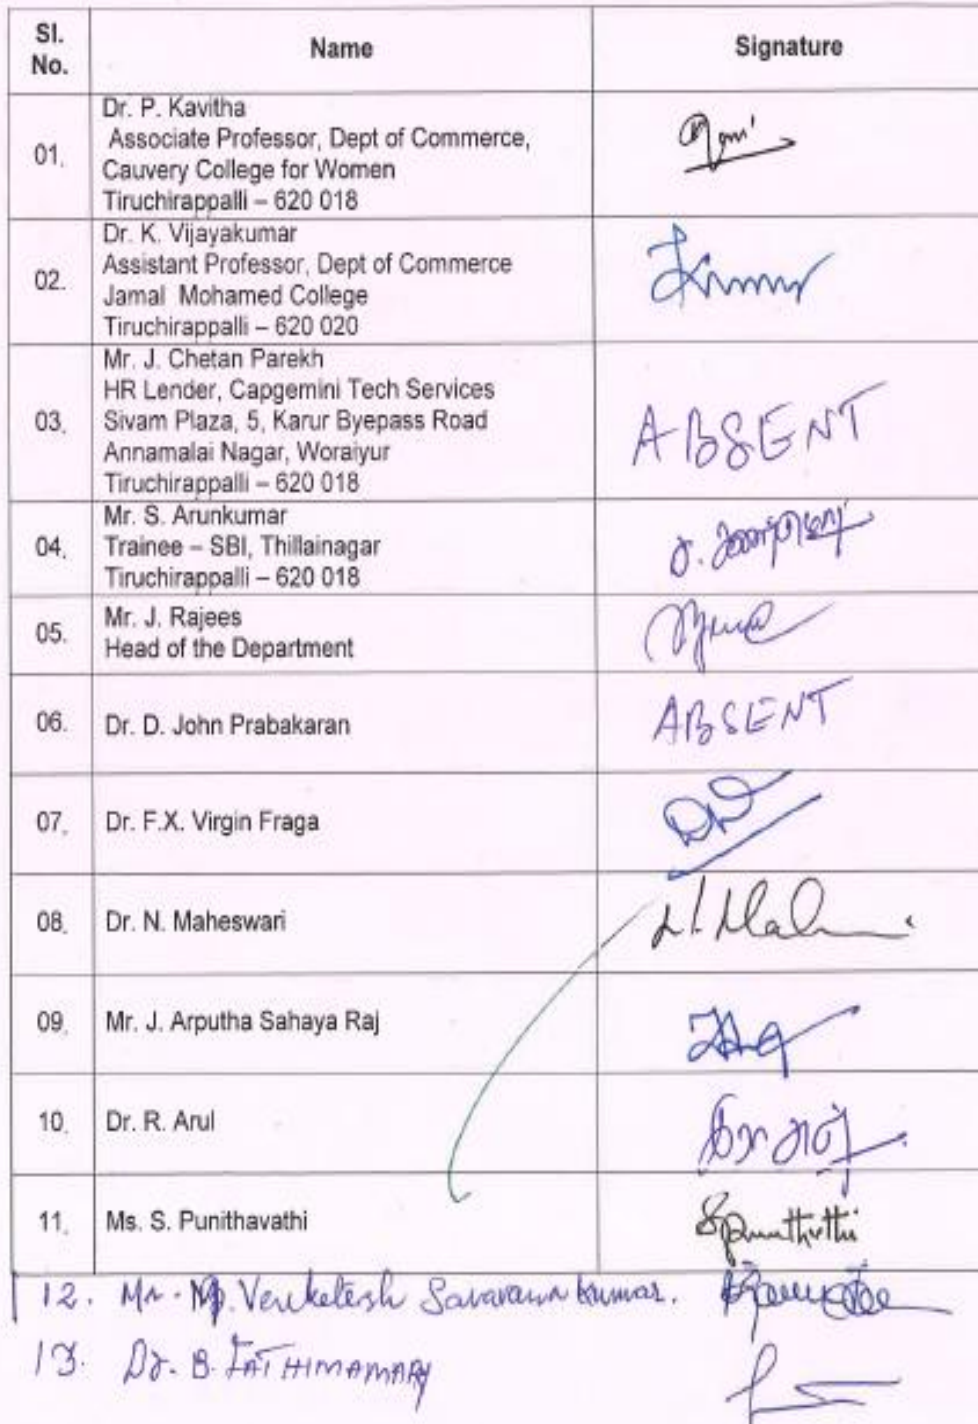 Sl. No. Name Signature
Dr. P. Kavitha
Associate Professor, Dept of Commerce,
01. Cauvery College for Women
Tiruchirappalli – 620 018
Dr. K. Vijayakumar
Assistant Professor, Dept of Commerce
02. Jamal Mohamed College
Tiruchirappalli – 620 020
Mr. J. Chetan Parekh
HR Lender, Capgemini Tech Services
03. Sivam Plaza, 5, Karur Byepass Road ABSENT
Annamalai Nagar, Woraiyur
Tiruchirappalli – 620 018
Mr. S. Arunkumar
04. Trainee – SBI, Thillainagar
Tiruchirappalli – 620 018
05. Mr. J. Rajees
Head of the Department
06. Dr. D. John Prabakaran ABSENT
07. Dr. F.X. Virgin Fraga
08. Dr. N. Maheswari
09. Mr. J. Arputha Sahaya Raj
10. Dr. R. Arul
11. Ms. S. Punithavathi
12. Mr. Venketesh Saravana kumar.
13. Dr. B. FATHIMAMARY